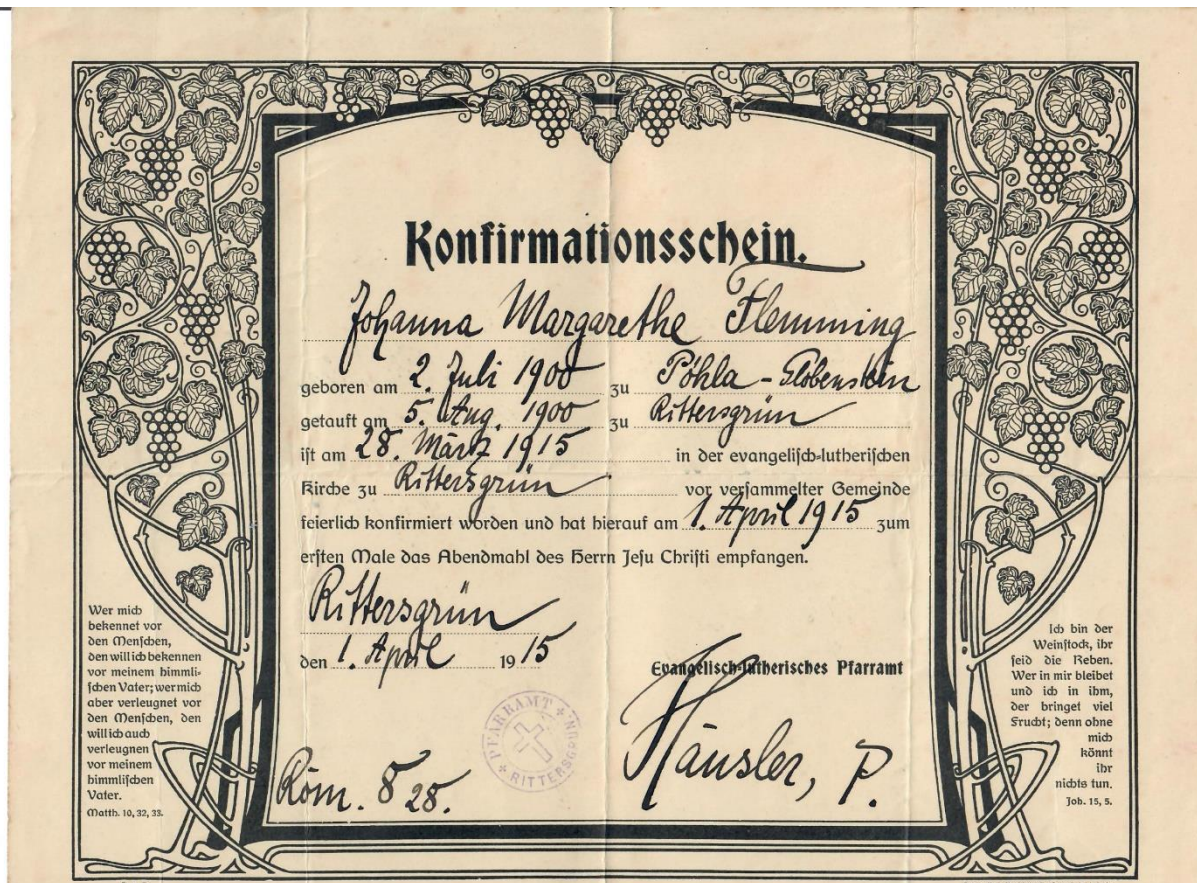 Konfirmationsschein.
Johanna Margarethe Flemming
geboren am 2. Juli 1900 zu Pöhla - Globenstein
getauft am 5. Aug. 1900 zu Rittersgrün
ist am 28. März 1915 in der evangelisch-lutherischen
Kirche zu Rittersgrün vor versammelter Gemeinde
feierlich konfirmiert worden und hat hierauf am 1. April 1915 zum
ersten Male das Abendmahl des Herrn Jesu Christi empfangen.
Rittersgrün
den 1. April 1915
Evangelisch-lutherisches Pfarramt
PFARRAMT
RITTERSGRÜN
Häusler, P.
Röm. 8 28.
Wer mich
bekennet vor
den Menschen,
den will ich bekennen
vor meinem himmli-
schen Vater; wer mich
aber verleugnet vor
den Menschen, den
will ich auch
verleugnen
vor meinem
himmlischen
Vater.
Matth. 10, 32, 33.
Ich bin der
Weinstock, ihr
seid die Reben.
Wer in mir bleibet
und ich in ihm,
der bringet viel
Frucht; denn ohne
mich
könnt
ihr
nichts tun.
Joh. 15, 5.